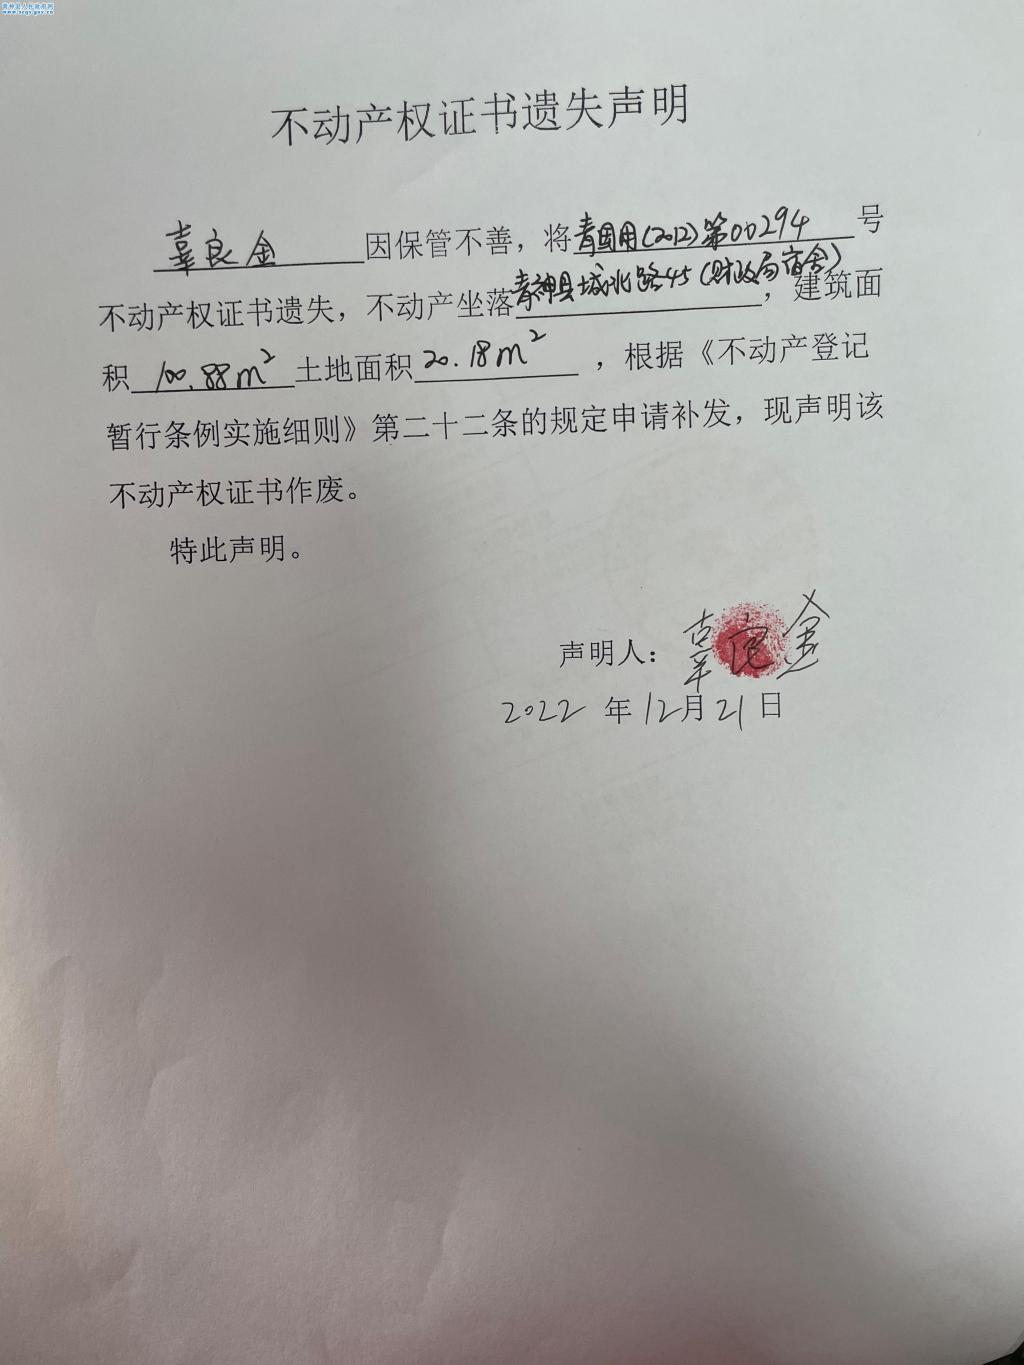 青神县人民政府网
www.scqs.gov.cn
不动产权证书遗失声明
辜良金因保管不善，将青国用(2012)第00294号
不动产权证书遗失，不动产坐落青神县城北路45(财政局宿舍)，建筑面
积100.88m²土地面积20.18m²，根据《不动产登记
暂行条例实施细则》第二十二条的规定申请补发，现声明该
不动产权证书作废。
特此声明。
声明人：辜良金
2022年12月21日